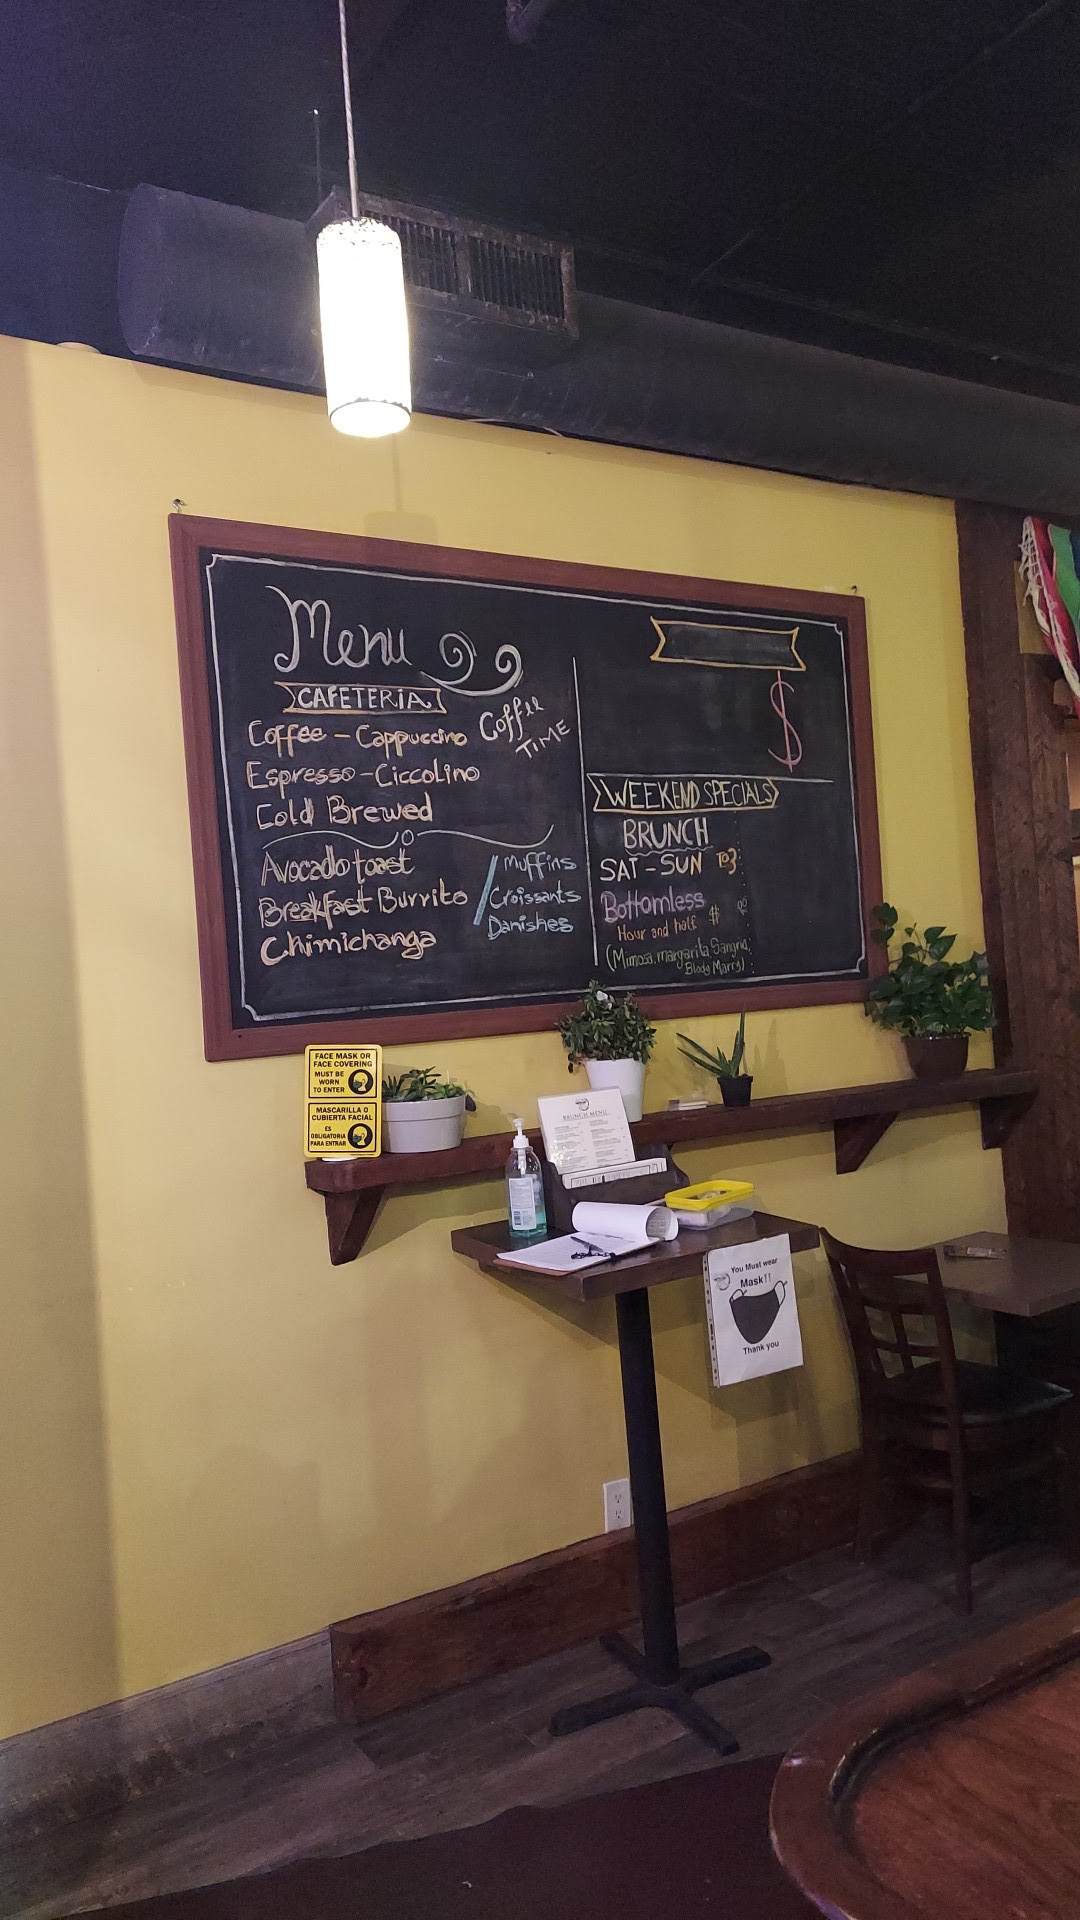 Menu
CAFETERIA
Coffee TIME
Coffee - Cappuccino
Espresso - Ciccolino
Cold Brewed
Avocado toast
Breakfast Burrito
Chimichanga
Muffins
Croissants
Danishes
$
WEEKEND SPECIALS
BRUNCH
SAT - SUN TO 3
Bottomless
Hour and half $
(Mimosa, margarita, Sangria,
Blody Marry)
FACE MASK OR
FACE COVERING
MUST BE
WORN
TO ENTER
MASCARILLA O
CUBIERTA FACIAL
ES
OBLIGATORIA
PARA ENTRAR
BRUNCH MENU
You Must wear
Mask!!
Thank you